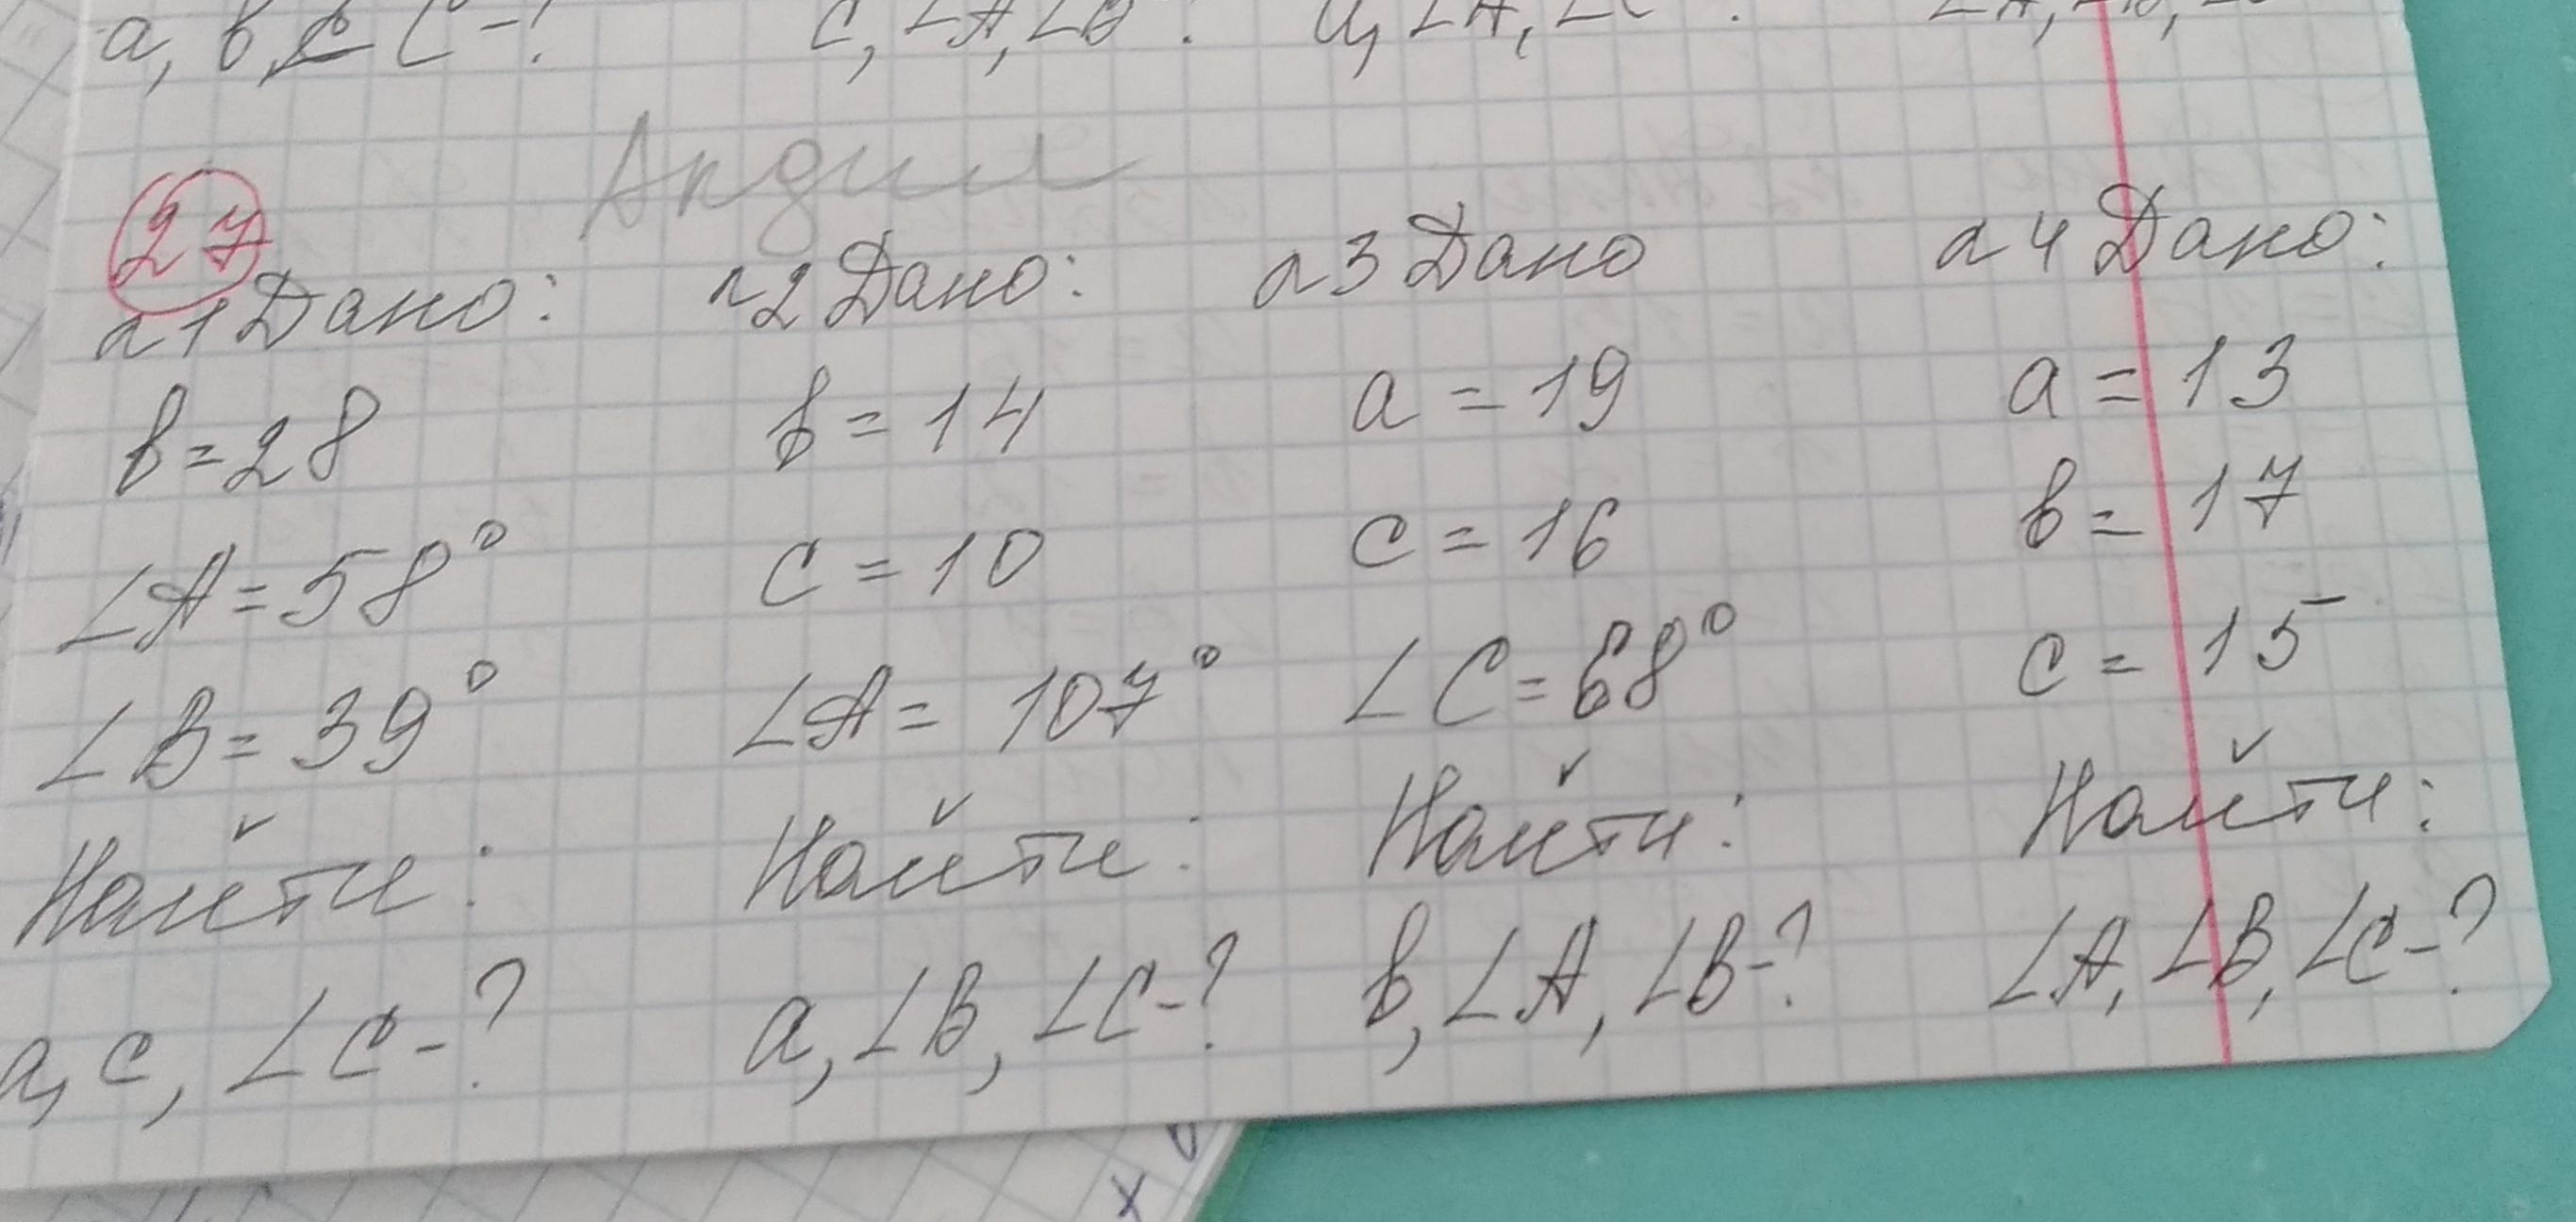 a, b, C-?
27
№1 Дано:
b=28
∠A=58°
∠B=39°
Найти:
a, c, ∠C-?
№2 Дано:
b=14
c=10
∠A=107°
Найти:
a, ∠B, ∠C-?
№3 Дано
a=19
c=16
∠C=68°
Найти:
b, ∠A, ∠B-?
№4 Дано:
a=13
b=17
c=15
Найти:
∠A, ∠B, ∠C-?